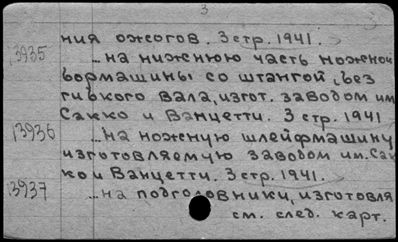 3
ния ожогов. 3 стр. 1941.
13935 ...на нижнюю часть ножной
бормашины со штангой, без
гибкого вала, изгот. заводом им
Сакко и Ванцетти. 3 стр. 1941
13936 ...на ножную шлейфмашину
изготовляемую заводом им. Сак
ко и Ванцетти. 3 стр. 1941.
13937 ...на подголовники, изготовля
см. след. карт.